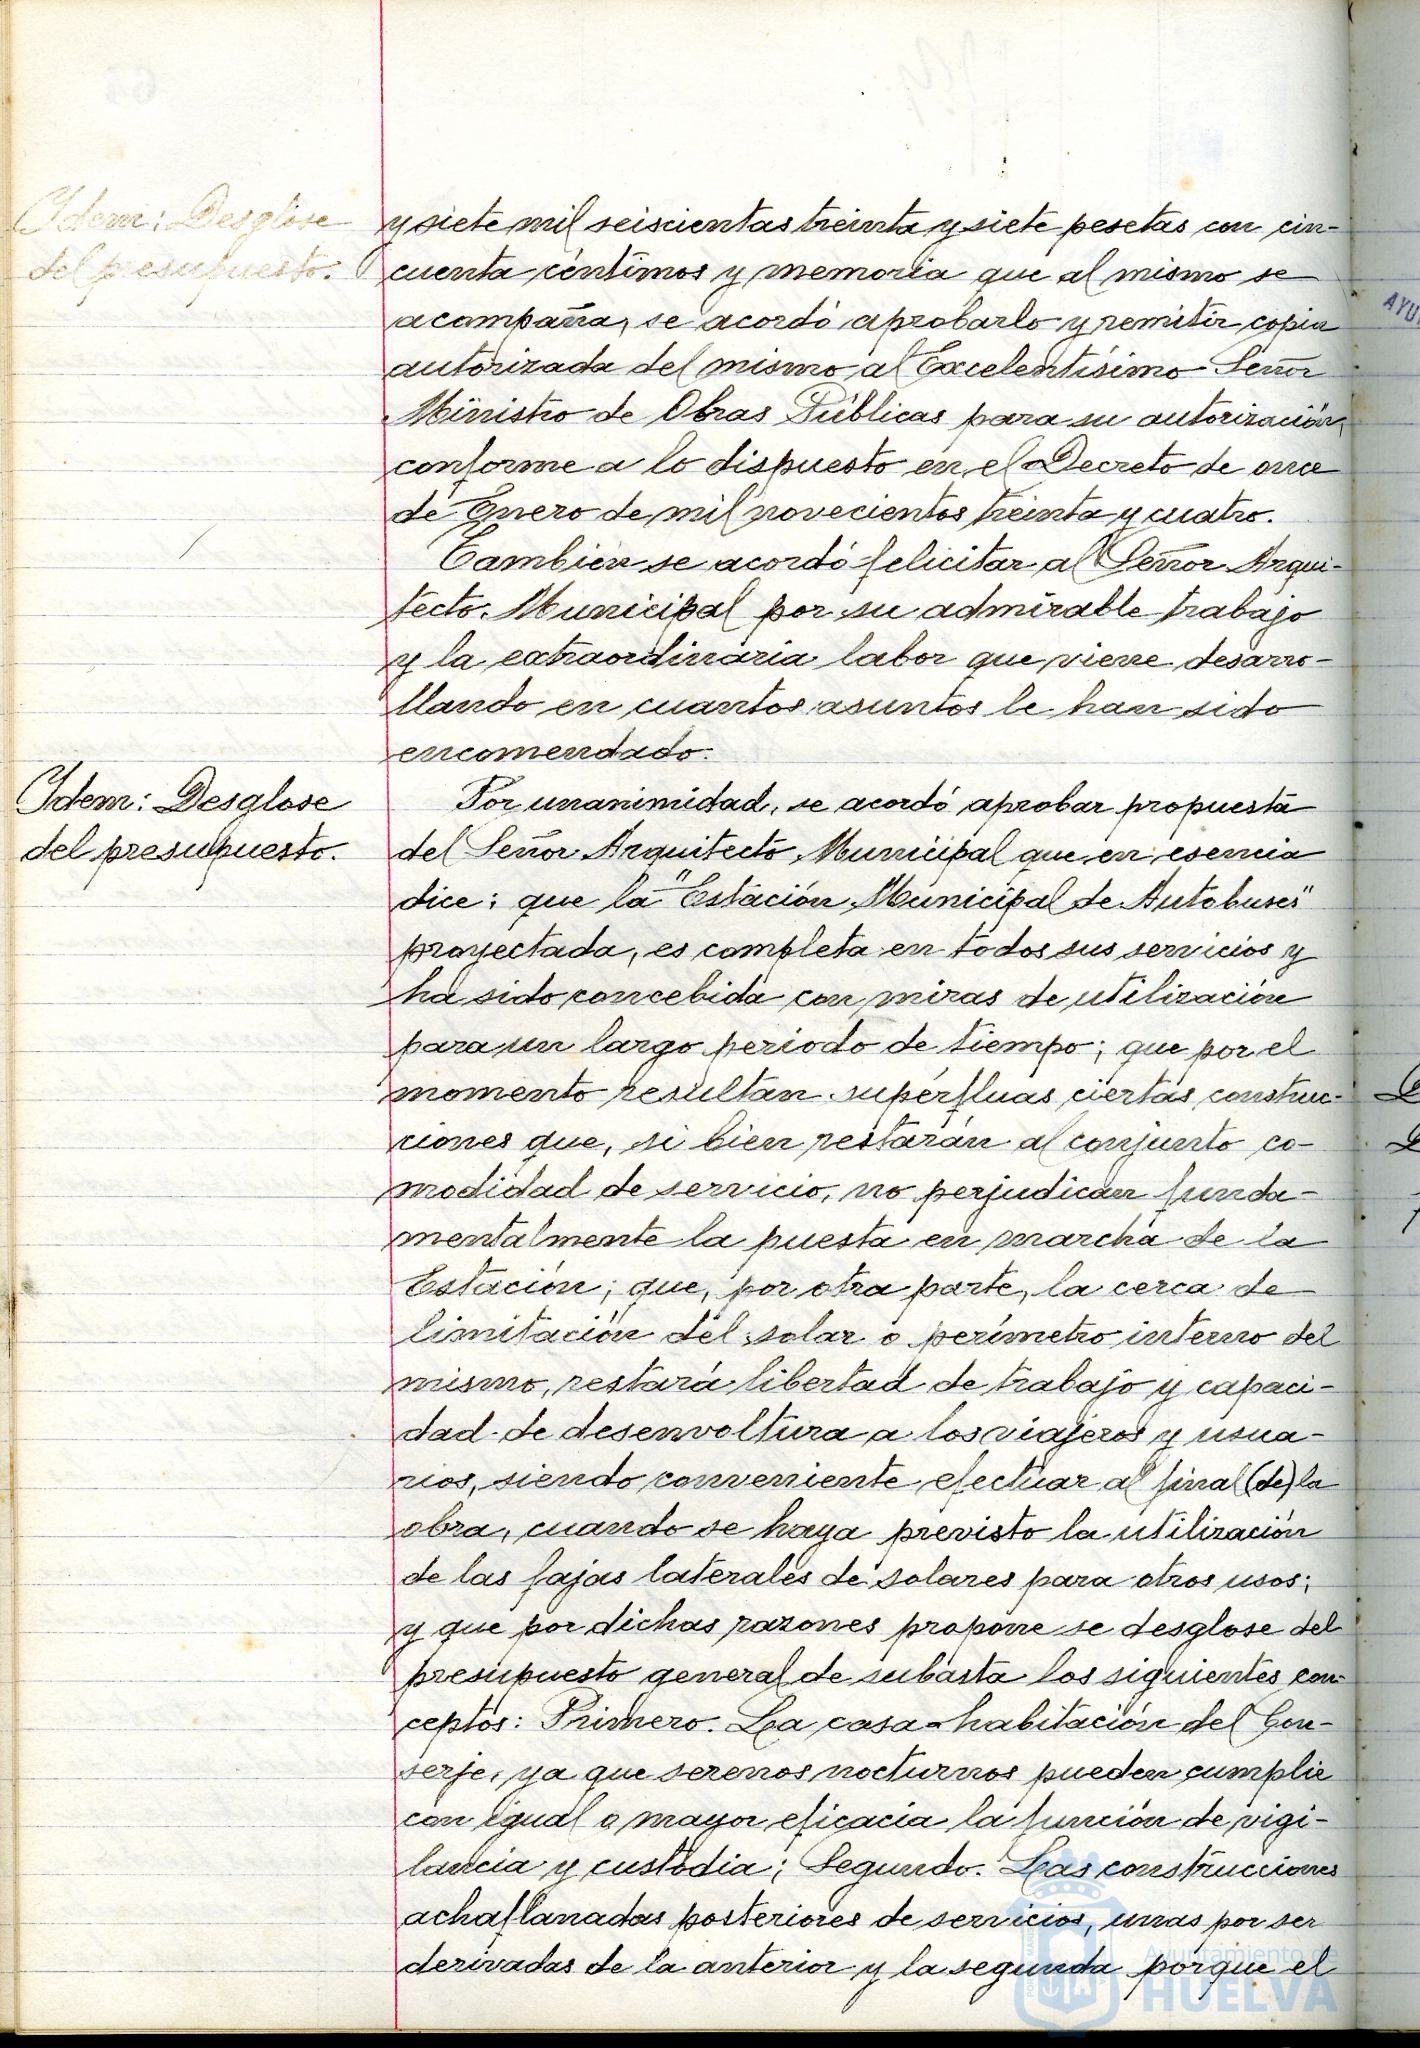 Idem: Desglose
del presupuesto.
y siete mil seiscientas treinta y siete pesetas con cin-
cuenta céntimos y memoria que al mismo se
acompaña, se acordó aprobarlo y remitir copia
autorizada del mismo al Excelentísimo Señor
Ministro de Obras Públicas para su autorización,
conforme a lo dispuesto en el Decreto de once
de Enero de mil novecientos treinta y cuatro.
También se acordó felicitar al Señor Arqui-
tecto Municipal por su admirable trabajo
y la extraordinaria labor que viene desarro-
llando en cuantos asuntos le han sido
encomendado.
Idem: Desglose
del presupuesto.
Por unanimidad, se acordó aprobar propuesta
del Señor Arquitecto Municipal que en esencia
dice: que la "Estación Municipal de Autobuses"
proyectada, es completa en todos sus servicios y
ha sido concebida con miras de utilización
para un largo periodo de tiempo; que por el
momento resultan supérfluas ciertas construc-
ciones que, si bien restarán al conjunto co-
modidad de servicio, no perjudican funda-
mentalmente la puesta en marcha de la
Estación; que, por otra parte, la cerca de
limitación del solar o perímetro interno del
mismo, restará libertad de trabajo y capaci-
dad de desenvoltura a los viajeros y usua-
rios, siendo conveniente efectuar al final (de) la
obra, cuando se haya previsto la utilización
de las fajas laterales de solares para otros usos;
y que por dichas razones propone se desglose del
presupuesto general de subasta los siguientes con-
ceptos: Primero. La casa-habitación del Con-
serje, ya que serenos nocturnos pueden cumplir
con igual o mayor eficacia la función de vigi-
lancia y custodia; Segundo. Las construcciones
achaflanadas posteriores de servicios, unas por ser
derivadas de la anterior y la segunda porque el
Ayuntamiento de
HUELVA